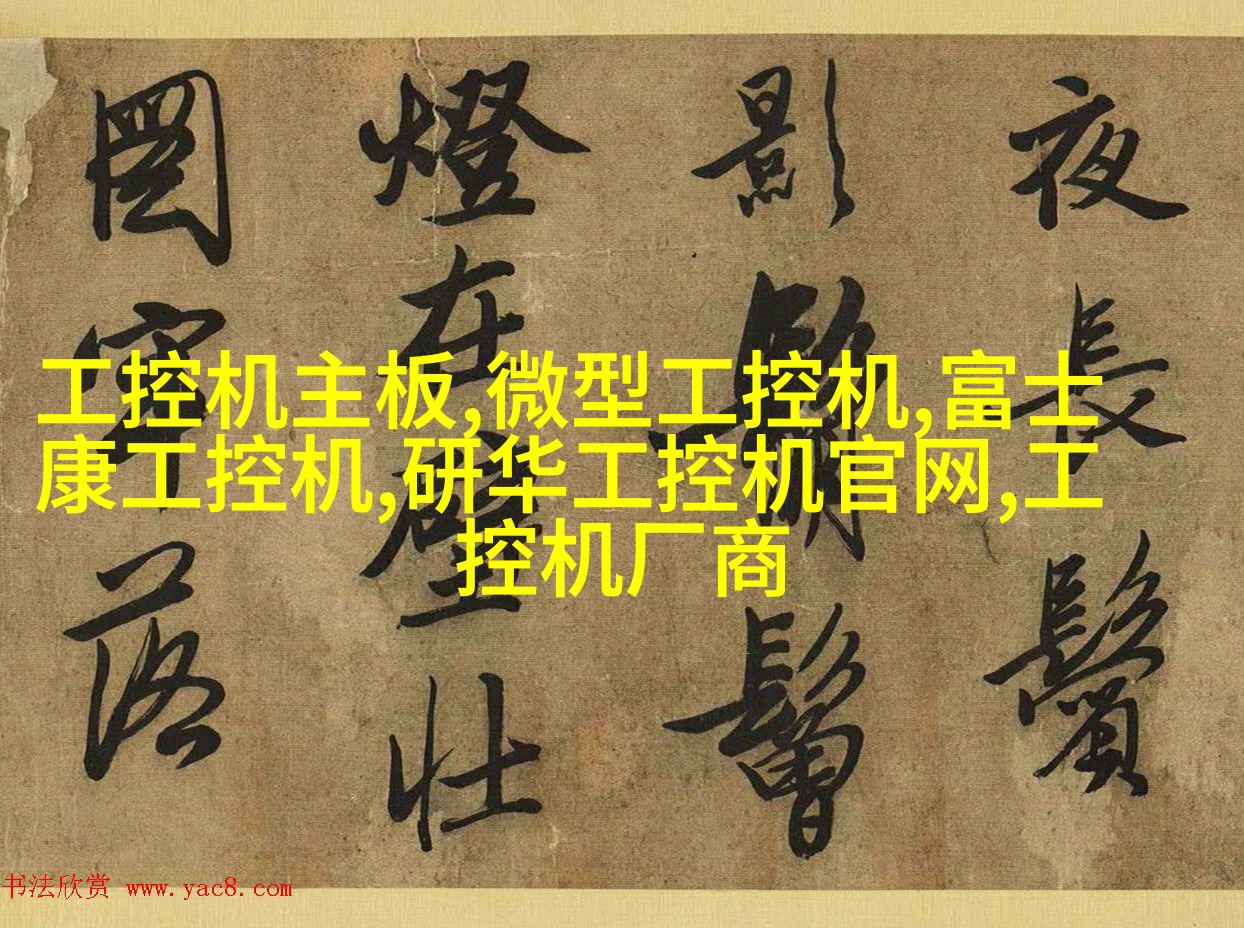 夜長鬢
影鬅鬙
燈在壁壮
圖牢落
工控机主板,微型工控机,富士
康工控机,研华工控机官网,工
控机厂商
书法欣赏 www.yac8.com